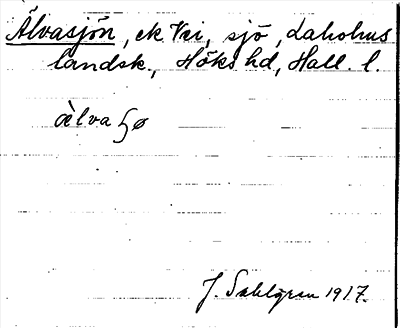 Älvasjön, ek Vei, sjö, Laholms
landsk., Höks hd, Hall. l.
älva ɧø
J. Sahlgren 1917.